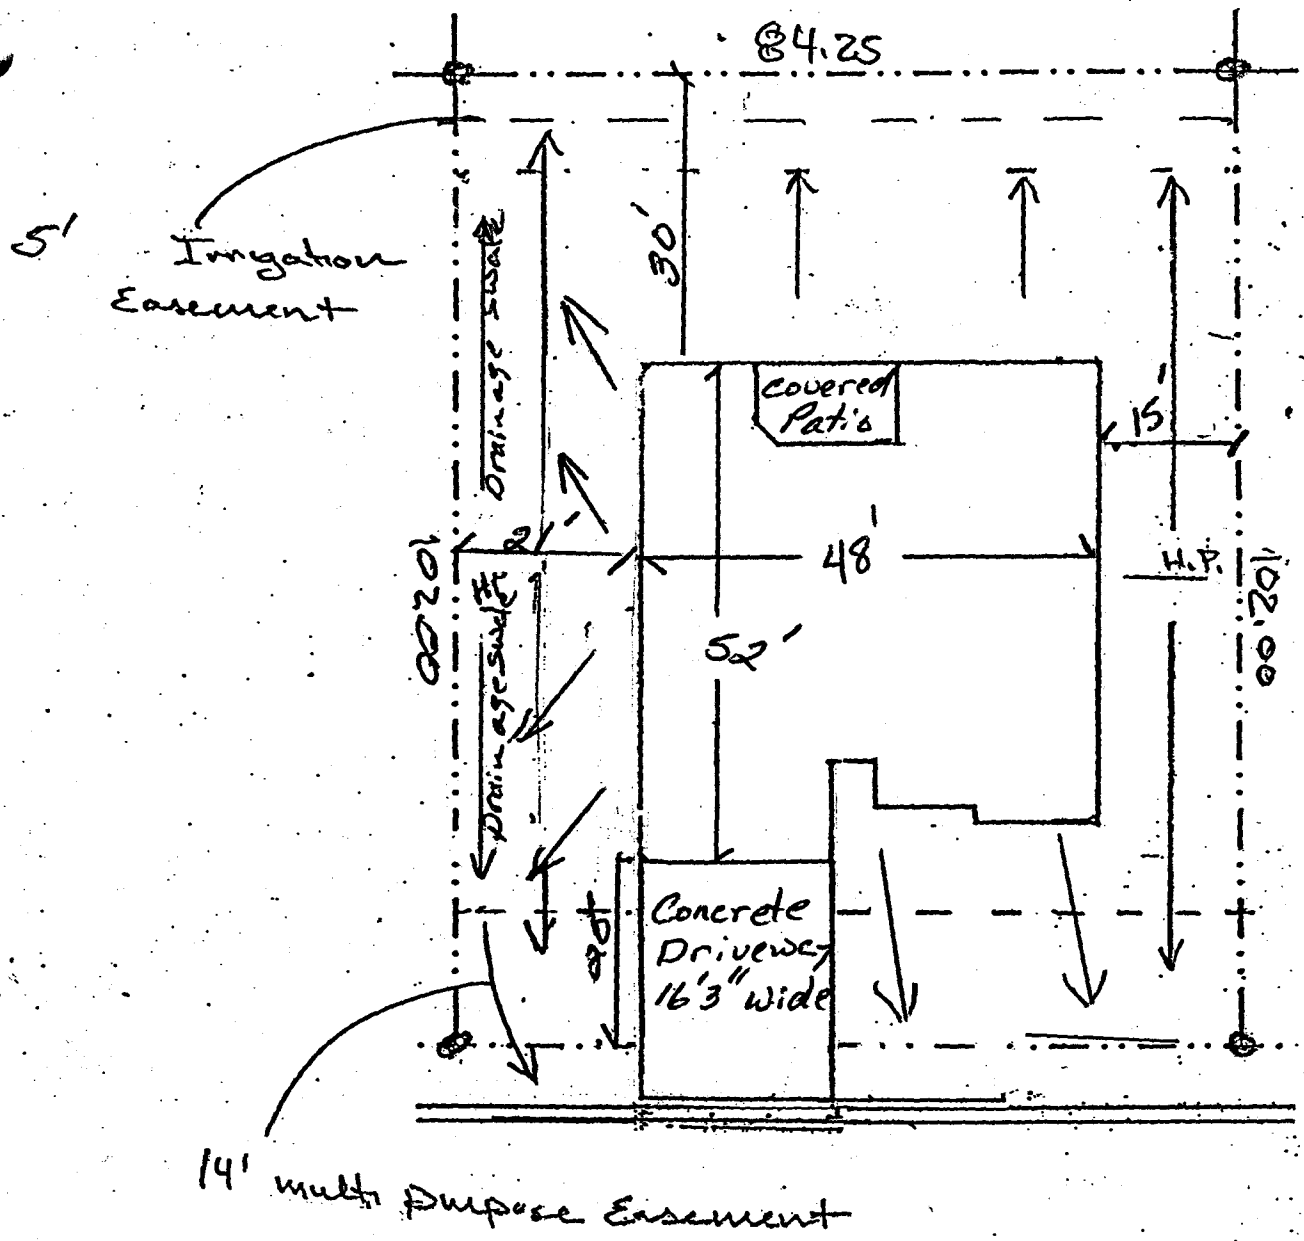 84.25
5'
Irrigation
Easement
30'
Drainage swale
covered
Patio
15'
48'
H.P.
102.00
102.00
52'
Drainage swale
20'
Concrete
Driveway
16'3" wide
14' multi purpose Easement